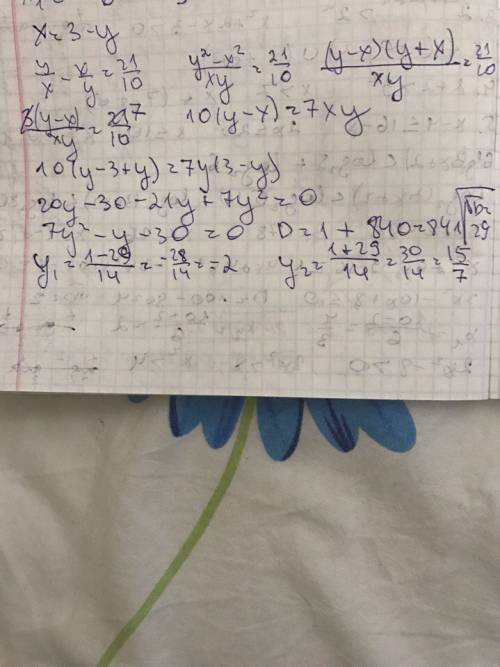 x = 3 - y
y/x - x/y = 21/10 (y² - x²)/xy = 21/10 (y-x)(y+x)/xy = 21/10
3(y-x)/xy = 21 7/10 10(y-x) = 7xy
10(y-3+y) = 7y(3-y)
20y - 30 - 21y + 7y² = 0
7y² - y - 30 = 0 D = 1 + 840 = 841 √D = 29
y₁ = (1-29)/14 = -28/14 = -2 y₂ = (1+29)/14 = 30/14 = 15/7